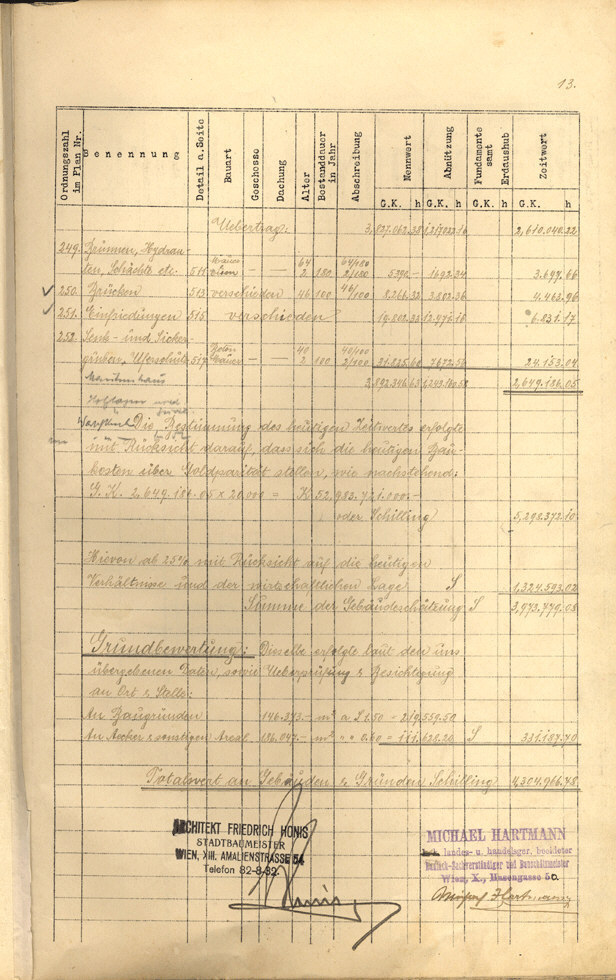 13.
Ordnungszahl im Plan Nr. Benennung Detail a. Seite Bauart Geschosse Dachung Alter Bestanddauer in Jahr Abschreibung Nennwert Abnützung Fundamente samt Erdaushub Zeitwert
G.K. h G.K. h G.K. h
Uebertrag: 3,827.062.38 2,610.040.22
249. Brunnen, Hydran-
ten, Schächte etc. 511 — — 2 180 2/180 5390.- 1692.34 3.697.66
250. Brücken 513 verschieden 46 100 46/100 8.266.32 3802.36 4.463.96
251. Einfriedungen 515 verschieden 19.808.33 12.976.16 6.831.17
252. Senk- und Sicker-
gruben, Uferschutz 517 — — 2 100 31.825.60 7672.56 24.153.04
2,892.346.63 2,649.186.05
Die Bestimmung des heutigen Zeitwertes erfolgte
mit Rücksicht darauf, dass sich die heutigen Bau-
kosten über Goldparität stellen, wie nachstehend:
G.K. 2,649.186.05 x 20.000 = K 52,983.721.100.-
oder Schilling 5,298.372.10
Hievon ab 25% mit Rücksicht auf die heutigen
Verhältnisse und der wirtschaftlichen Lage S 1,324.593.02
Summe der Gebäudeschätzung S 3,973.779.08
Grundbewertung: Dieselbe erfolgte laut den uns
übergebenen Daten, sowie Ueberprüfung & Besichtigung
an Ort & Stelle:
An Baugründen 146.373.— m² a S 1.50 = 219,559.50
An Aecker & sonstigen Areal 136.047.— m² " " 0.80 = 111,628.20 S 331,187.70
Totalwert an Gebäuden & Gründen Schilling 4,304.966.78
ARCHITEKT FRIEDRICH HONIS
STADTBAUMEISTER
WIEN, XIII. AMALIENSTRASSE 54
Telefon 82-8-32.
MICHAEL HARTMANN
landes- u. handelsger. beeideter
Wien, X., Hasengasse 50.
Michael Hartmann